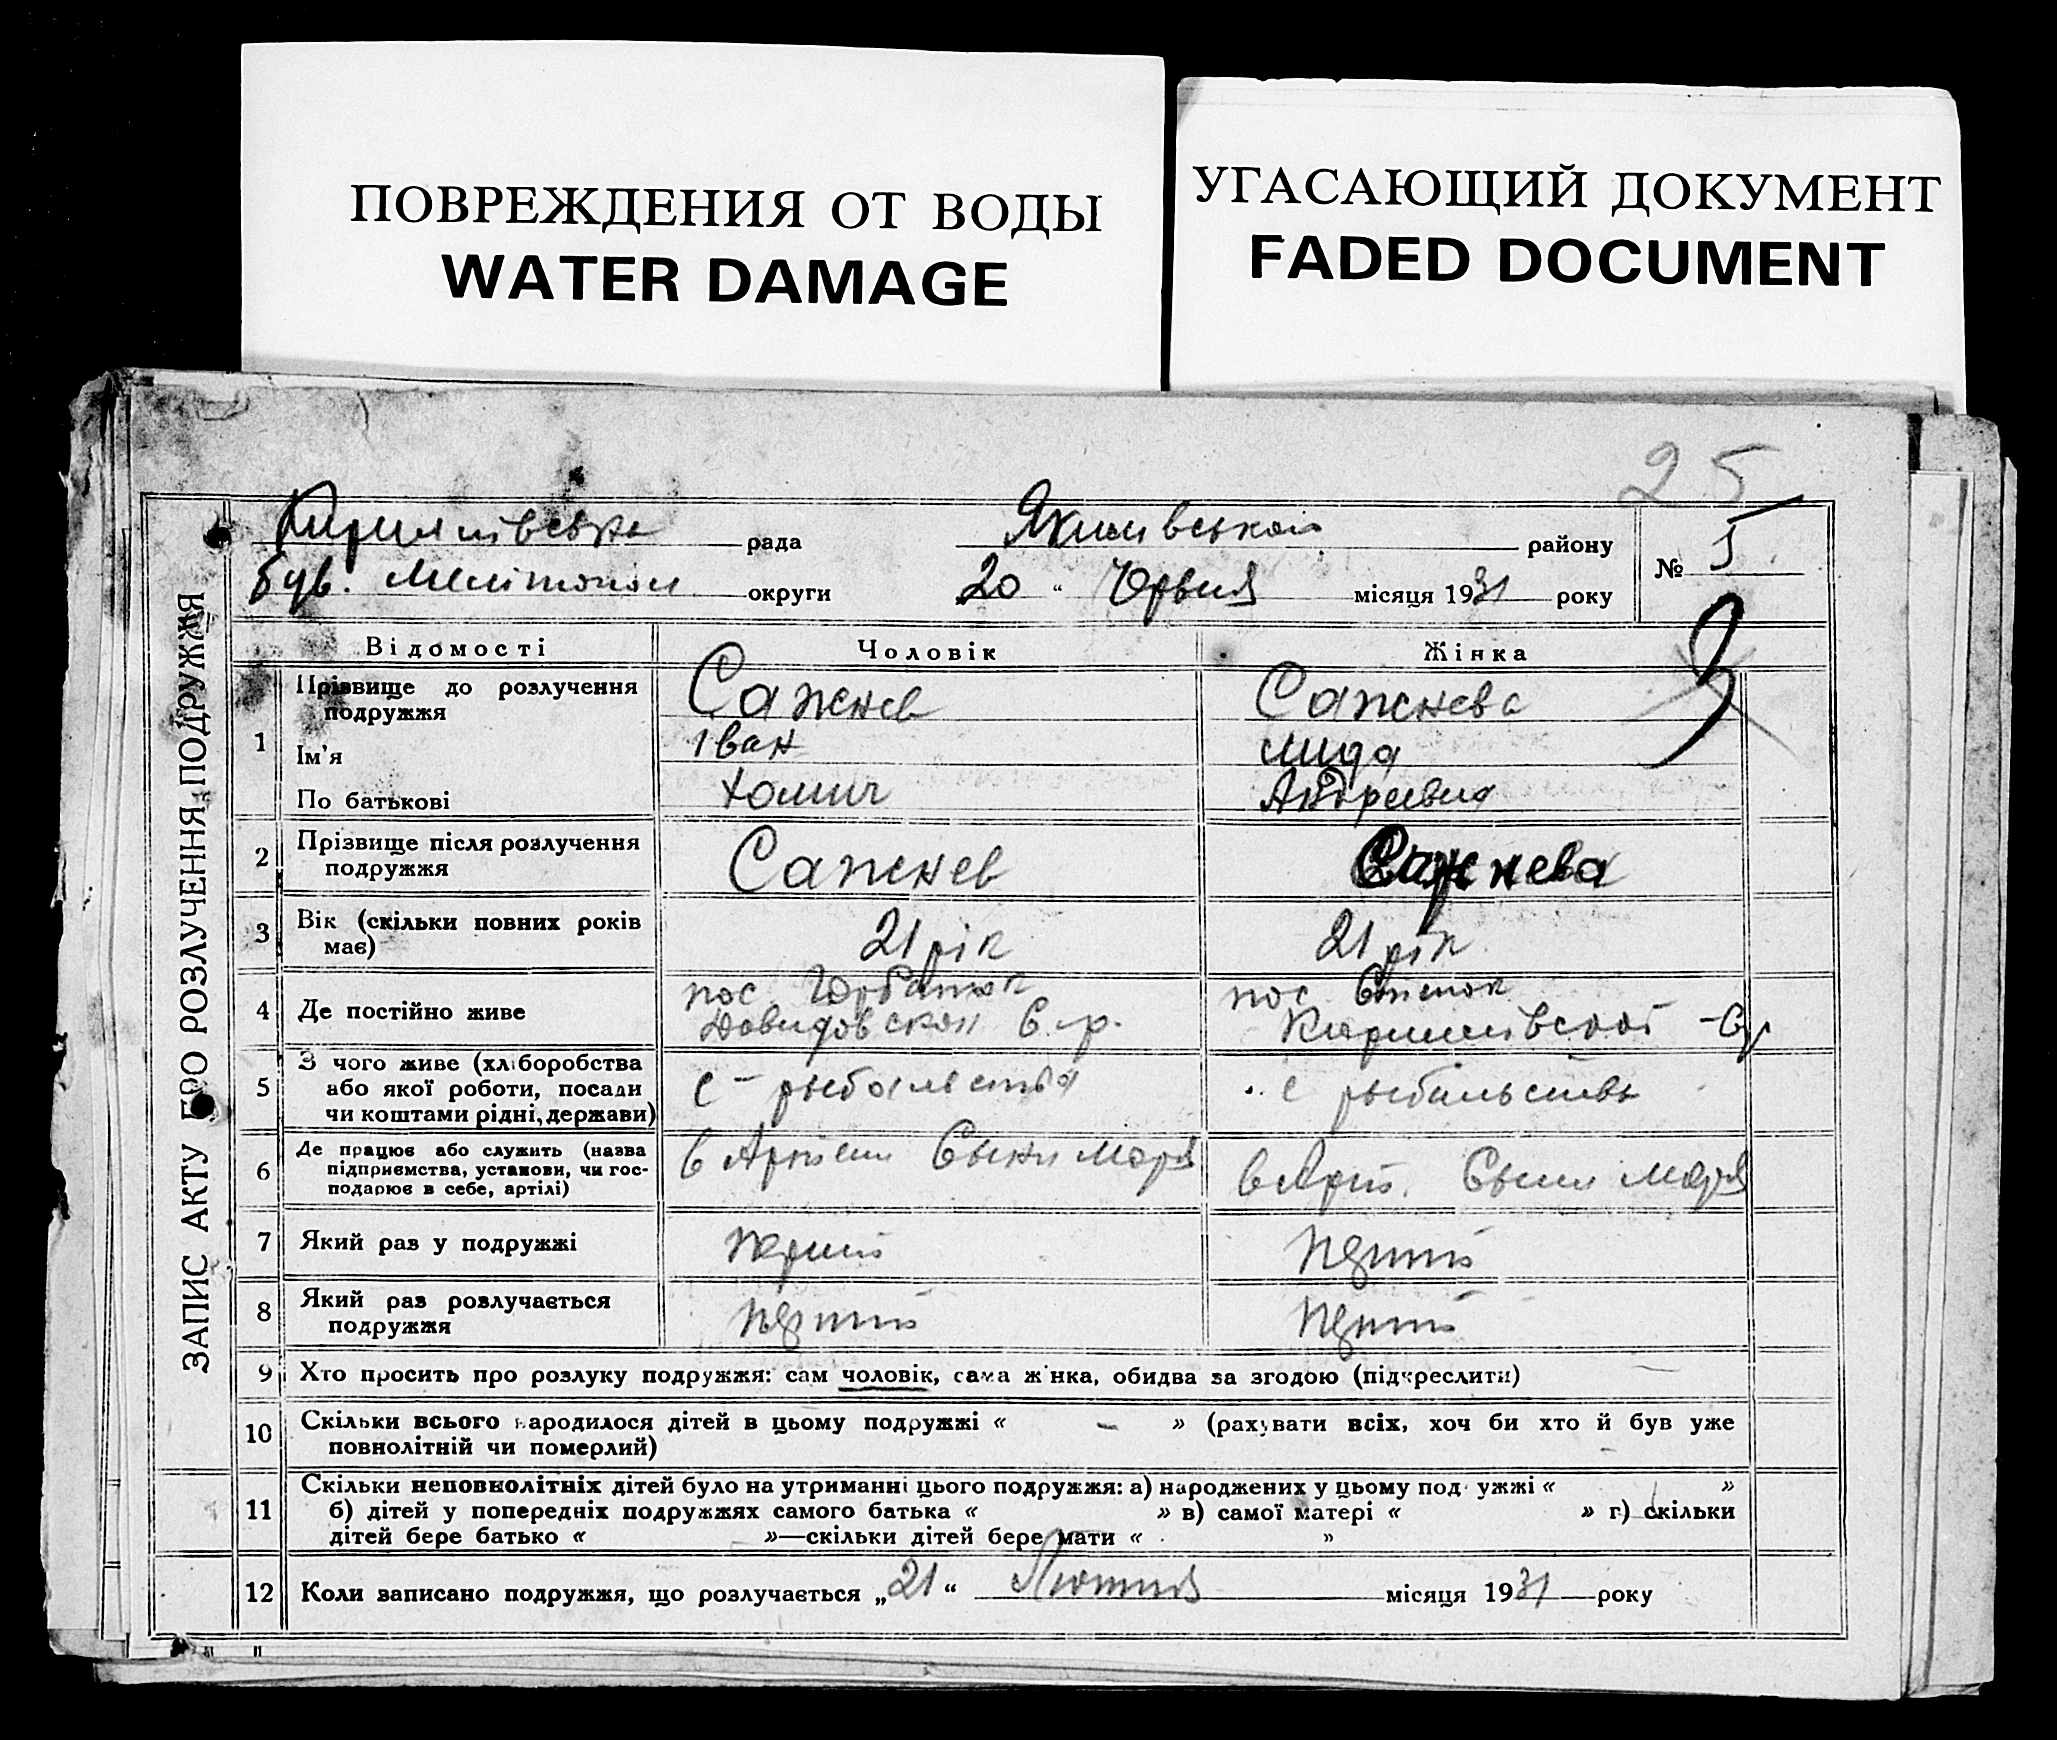 ПОВРЕЖДЕНИЯ ОТ ВОДЫ
WATER DAMAGE
УГАСАЮЩИЙ ДОКУМЕНТ
FADED DOCUMENT
25
ЗАПИС АКТУ ПРО РОЗЛУЧЕННЯ ПОДРУЖЖЯ
Кирилівська рада Якимівської району № 5
був. Мелітопол округи 20 " Червня місяця 1931 року
Відомості Чоловік Жінка
1 Прізвище до розлучення Сажнев Сажнева
подружжя
Ім'я Іван Лида
По батькові Хомич Андреевна
2 Прізвище після розлучення Сажнев Сажнева
подружжя
3 Вік (скільки повних років 21 рік 21 рік
має)
4 Де постійно живе пос пос Степок
Кирилівської
5 З чого живе (хліборобства с рыбальства с рыбальствь
або якої роботи, посади
чи коштами рідні, держави)
6 Де працює або служить (назва в Артели Сыни Моря в Арт. Сыни Моря
підприємства, установи, чи гос-
подарює в себе, артілі)
7 Який раз у подружжі перший перший
8 Який раз розлучається перший перший
подружжя
9 Хто просить про розлуку подружжя: сам чоловік, сама жінка, обидва за згодою (підкреслити)
10 Скільки всього народилося дітей в цьому подружжі « – » (рахувати всіх, хоч би хто й був уже
повнолітній чи померлий)
11 Скільки неповнолітніх дітей було на утриманні цього подружжя: а) народжених у цьому подружжі « »
б) дітей у попередніх подружжях самого батька « » в) самої матері « » г) скільки
дітей бере батько « »—скільки дітей бере мати « »
12 Коли записано подружжя, що розлучається „21“ Лютня місяця 1931 року